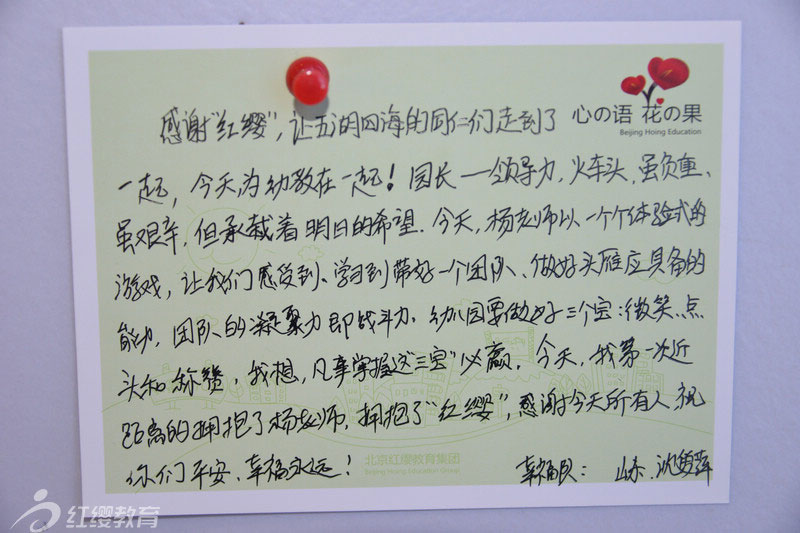 心の语 花の果
Beijing Hoing Education
感谢“红缨”,让五湖四海的同仁们走到了
一起,今天为幼教在一起!园长—领导力,火车头,虽负重、
虽艰辛,但承载着明日的希望。今天,杨老师以一个个体验式的
游戏,让我们感受到、学习到带好一个团队、做好头雁应具备的
能力,团队的凝聚力即战斗力。幼儿园要做好三个宝:微笑、点
头和称赞,我想,凡事掌握这“三宝”必赢。今天,我第一次近
距离的拥抱了杨老师,拥抱了“红缨”,感谢今天所有人,祝
你们平安、幸福永远!
幸福队: 山东、沈
北京红缨教育集团
Beijing Hoing Education Group
红缨教育